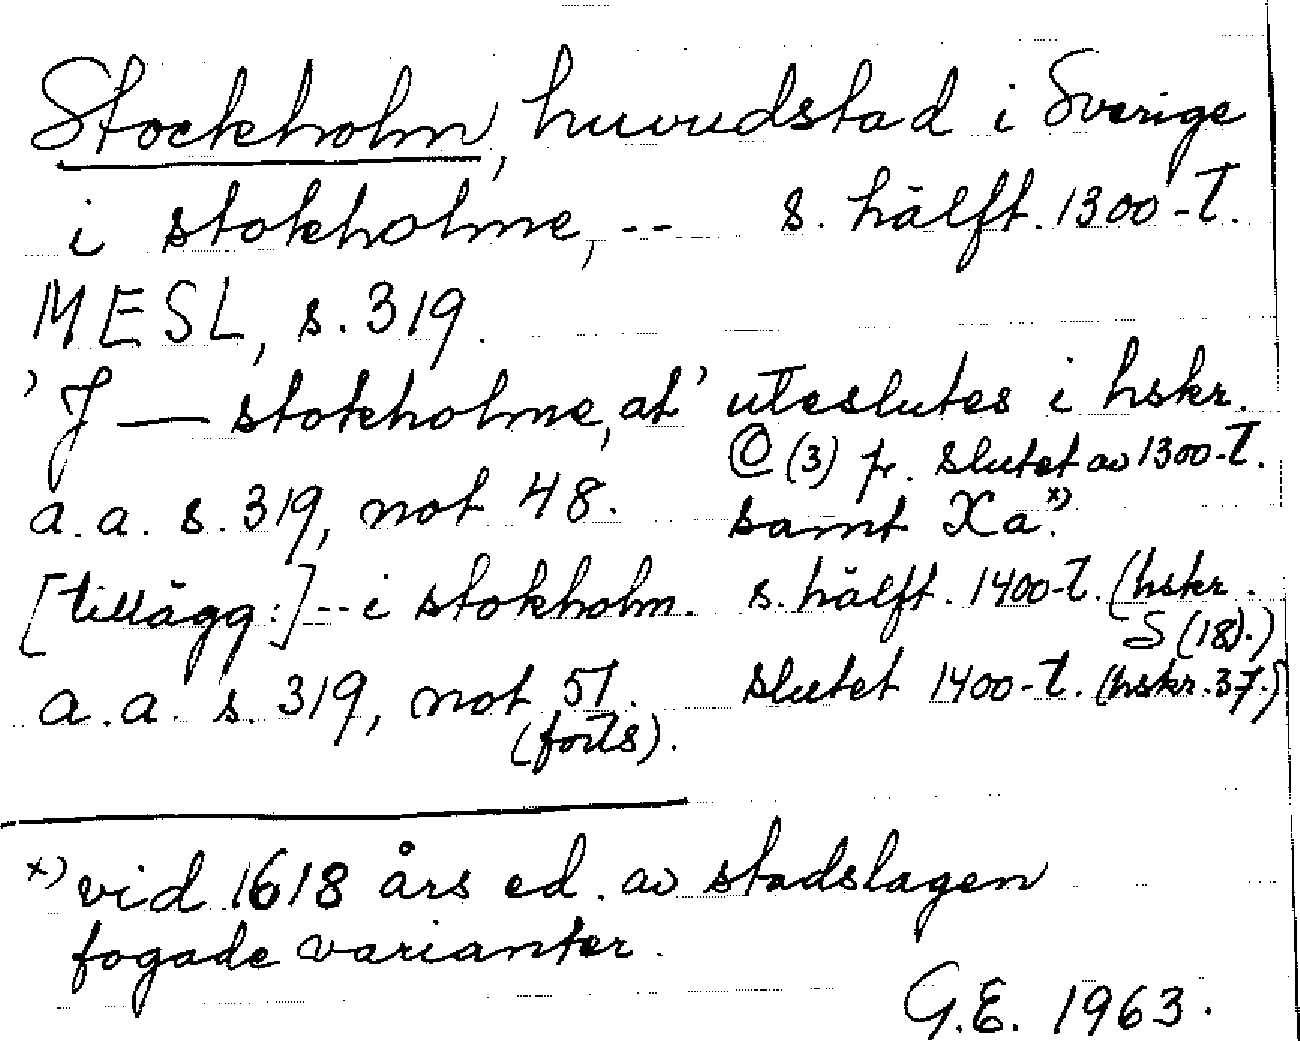 Stockholm, huvudstad i Sverige
i stokholme, -- s. hälft. 1300-t.
MESL, s. 319.
'J — stokholme, at' uteslutes i hskr.
© (3) fr. slutet av 1300-t.
a.a. s. 319, not 48. samt Xa.*)
[tillägg:] -- i stokholm. s. hälft. 1400-t. (hskr.
S (18).)
a.a. s. 319, not 51. slutet 1400-t. (hskr. 37.)
(forts).
*) vid 1618 års ed. av stadslagen
fogade varianter.
G.E. 1963.